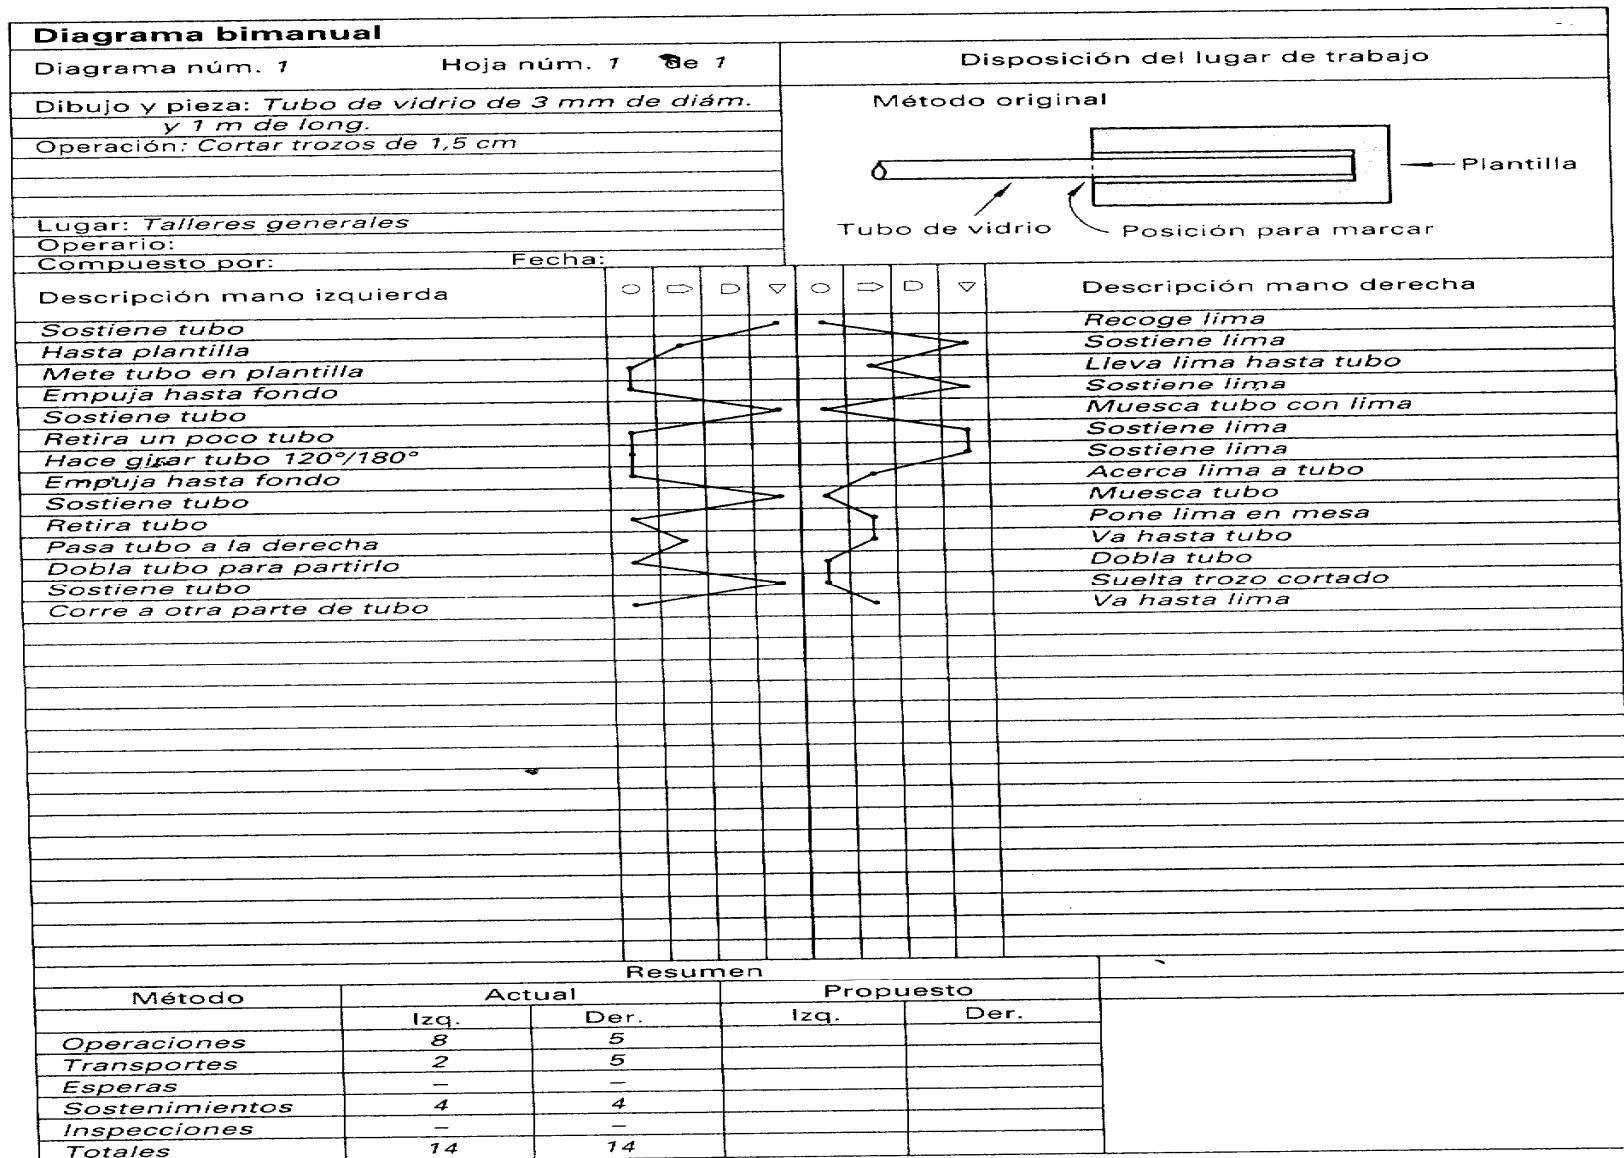 Diagrama bimanual
Diagrama núm. 1 Hoja núm. 1 de 1
Disposición del lugar de trabajo
Dibujo y pieza: Tubo de vidrio de 3 mm de diám.
y 1 m de long.
Operación: Cortar trozos de 1,5 cm
Lugar: Talleres generales
Operario:
Compuesto por: Fecha:
Método original
Plantilla
Tubo de vidrio
Posición para marcar
Descripción mano izquierda Descripción mano derecha
Sostiene tubo Recoge lima
Hasta plantilla Sostiene lima
Mete tubo en plantilla Lleva lima hasta tubo
Empuja hasta fondo Sostiene lima
Sostiene tubo Muesca tubo con lima
Retira un poco tubo Sostiene lima
Hace girar tubo 120°/180° Sostiene lima
Empuja hasta fondo Acerca lima a tubo
Sostiene tubo Muesca tubo
Retira tubo Pone lima en mesa
Pasa tubo a la derecha Va hasta tubo
Dobla tubo para partirlo Dobla tubo
Sostiene tubo Suelta trozo cortado
Corre a otra parte de tubo Va hasta lima
Resumen
Método Actual Propuesto
Izq. Der. Izq. Der.
Operaciones 8 5
Transportes 2 5
Esperas – –
Sostenimientos 4 4
Inspecciones – –
Totales 14 14